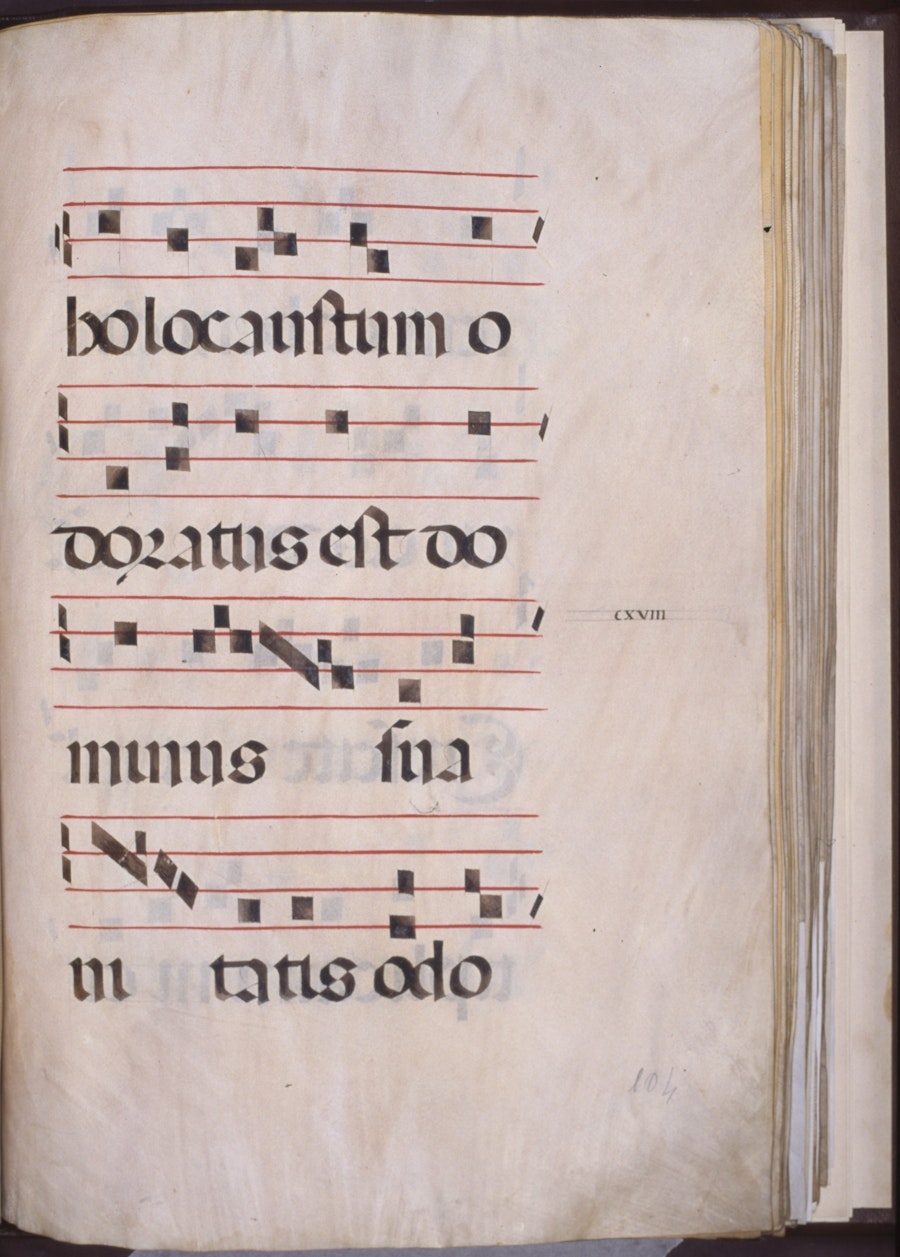 holocaustum o
doratus est do
cxviii
minus sua
ui tatis odo
104